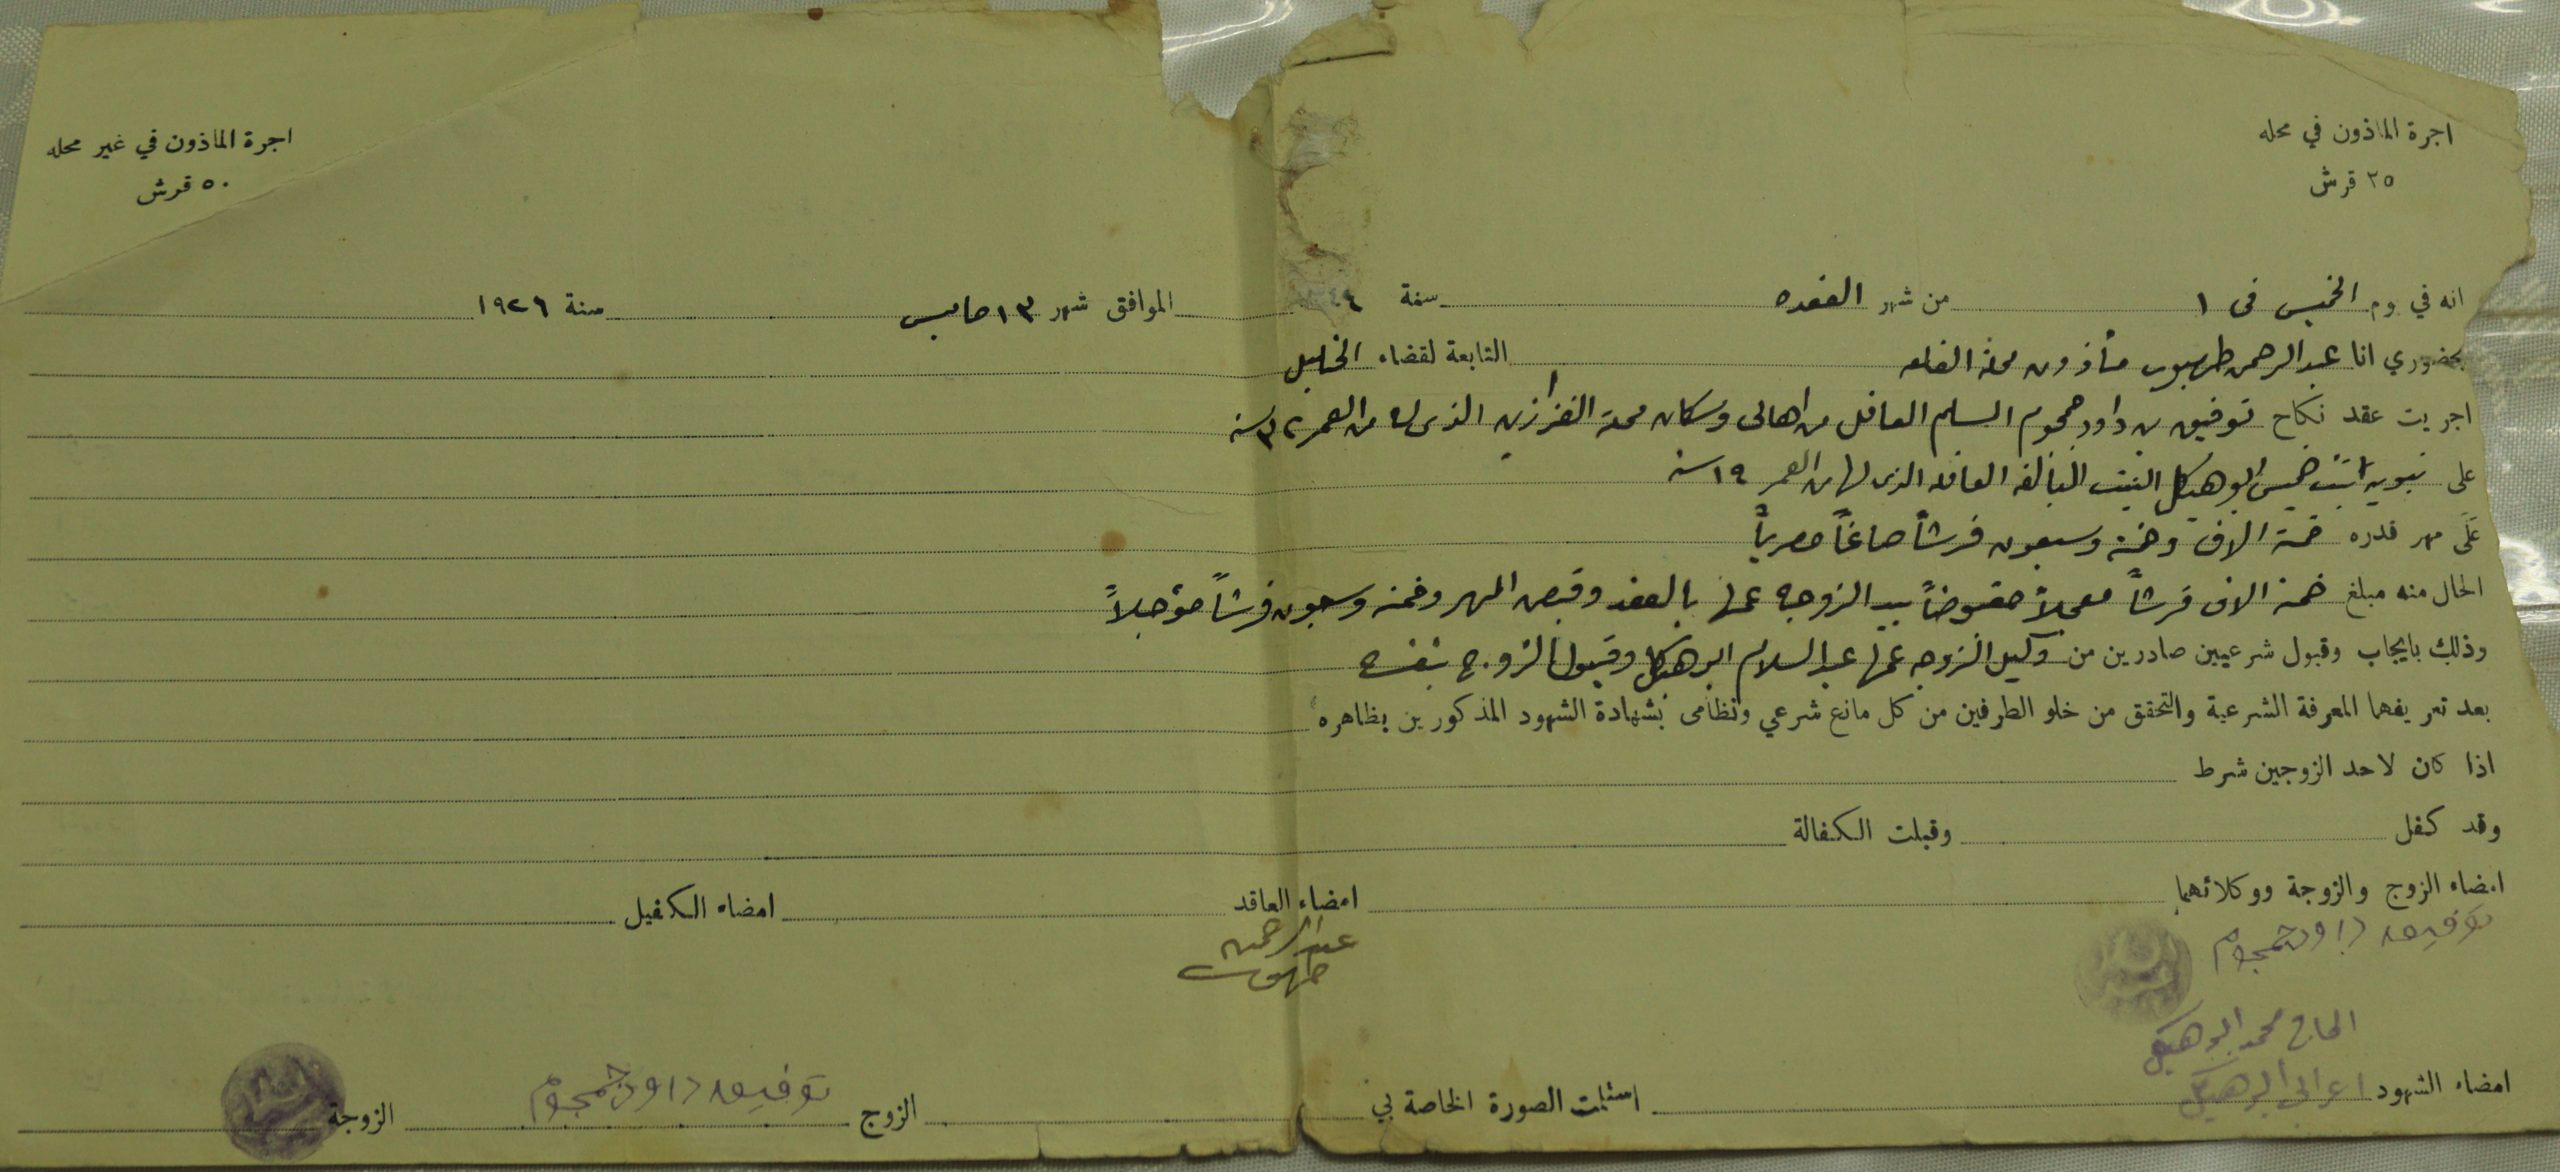 اجرة الماذون في محله
٢٥ قرش
اجرة الماذون في غير محله
٥٠ قرش
انه في يوم الخميس في ١ من شهر القعده سنة الموافق شهر ١٣ مايس سنة ١٩٢٦
بحضوري انا عبد الرحمن طهبوب مأذون محلة القلعه التابعة لقضاء الخليل
اجريت عقد نكاح توفيق بن داود جمجوم المسلم العاقل من اهالي وسكان محلة القزازين الذي له من العمر ٣٢ سنة
على نبويه بنت خميس ابو هيكل الثيب البالغه العاقله الذي لها من العمر ١٩ سنة
على مهر قدره خمسة الاف وخمسة وسبعون قرشاً صاغاً مصرياً
الحال منه مبلغ خمسة الاف قرشاً معجلاً مقبوضاً بيد الزوجه عمها بالعقد وقبض المهر وخمسة وسبعون قرشاً مؤجلاً
وذلك بايجاب وقبول شرعيين صادرين من وكيل الزوجه عمها عبد السلام ابو هيكل وقبول الزوج بنفسه
بعد تعريفهما المعرفة الشرعية والتحقق من خلو الطرفين من كل مانع شرعي ونظامى بشهادة الشهود المذكورين بظاهره
اذا كان لاحد الزوجين شرط
وقد كفل وقبلت الكفالة
امضاء الزوج والزوجة ووكلائهما امضاء العاقد امضاء الكفيل
توفيق داود جمجوم
عبد الرحمن
طهبوب
الحاج محمد ابو هيكل
امضاء الشهود اعرابي ابو هيكل استلمت الصورة الخاصة بي الزوج توفيق داود جمجوم الزوجة